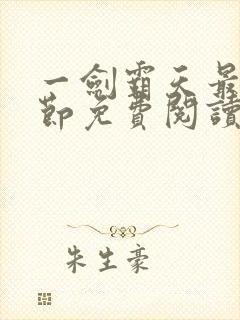 一劍霸天最
節免費閱讀
朱生豪